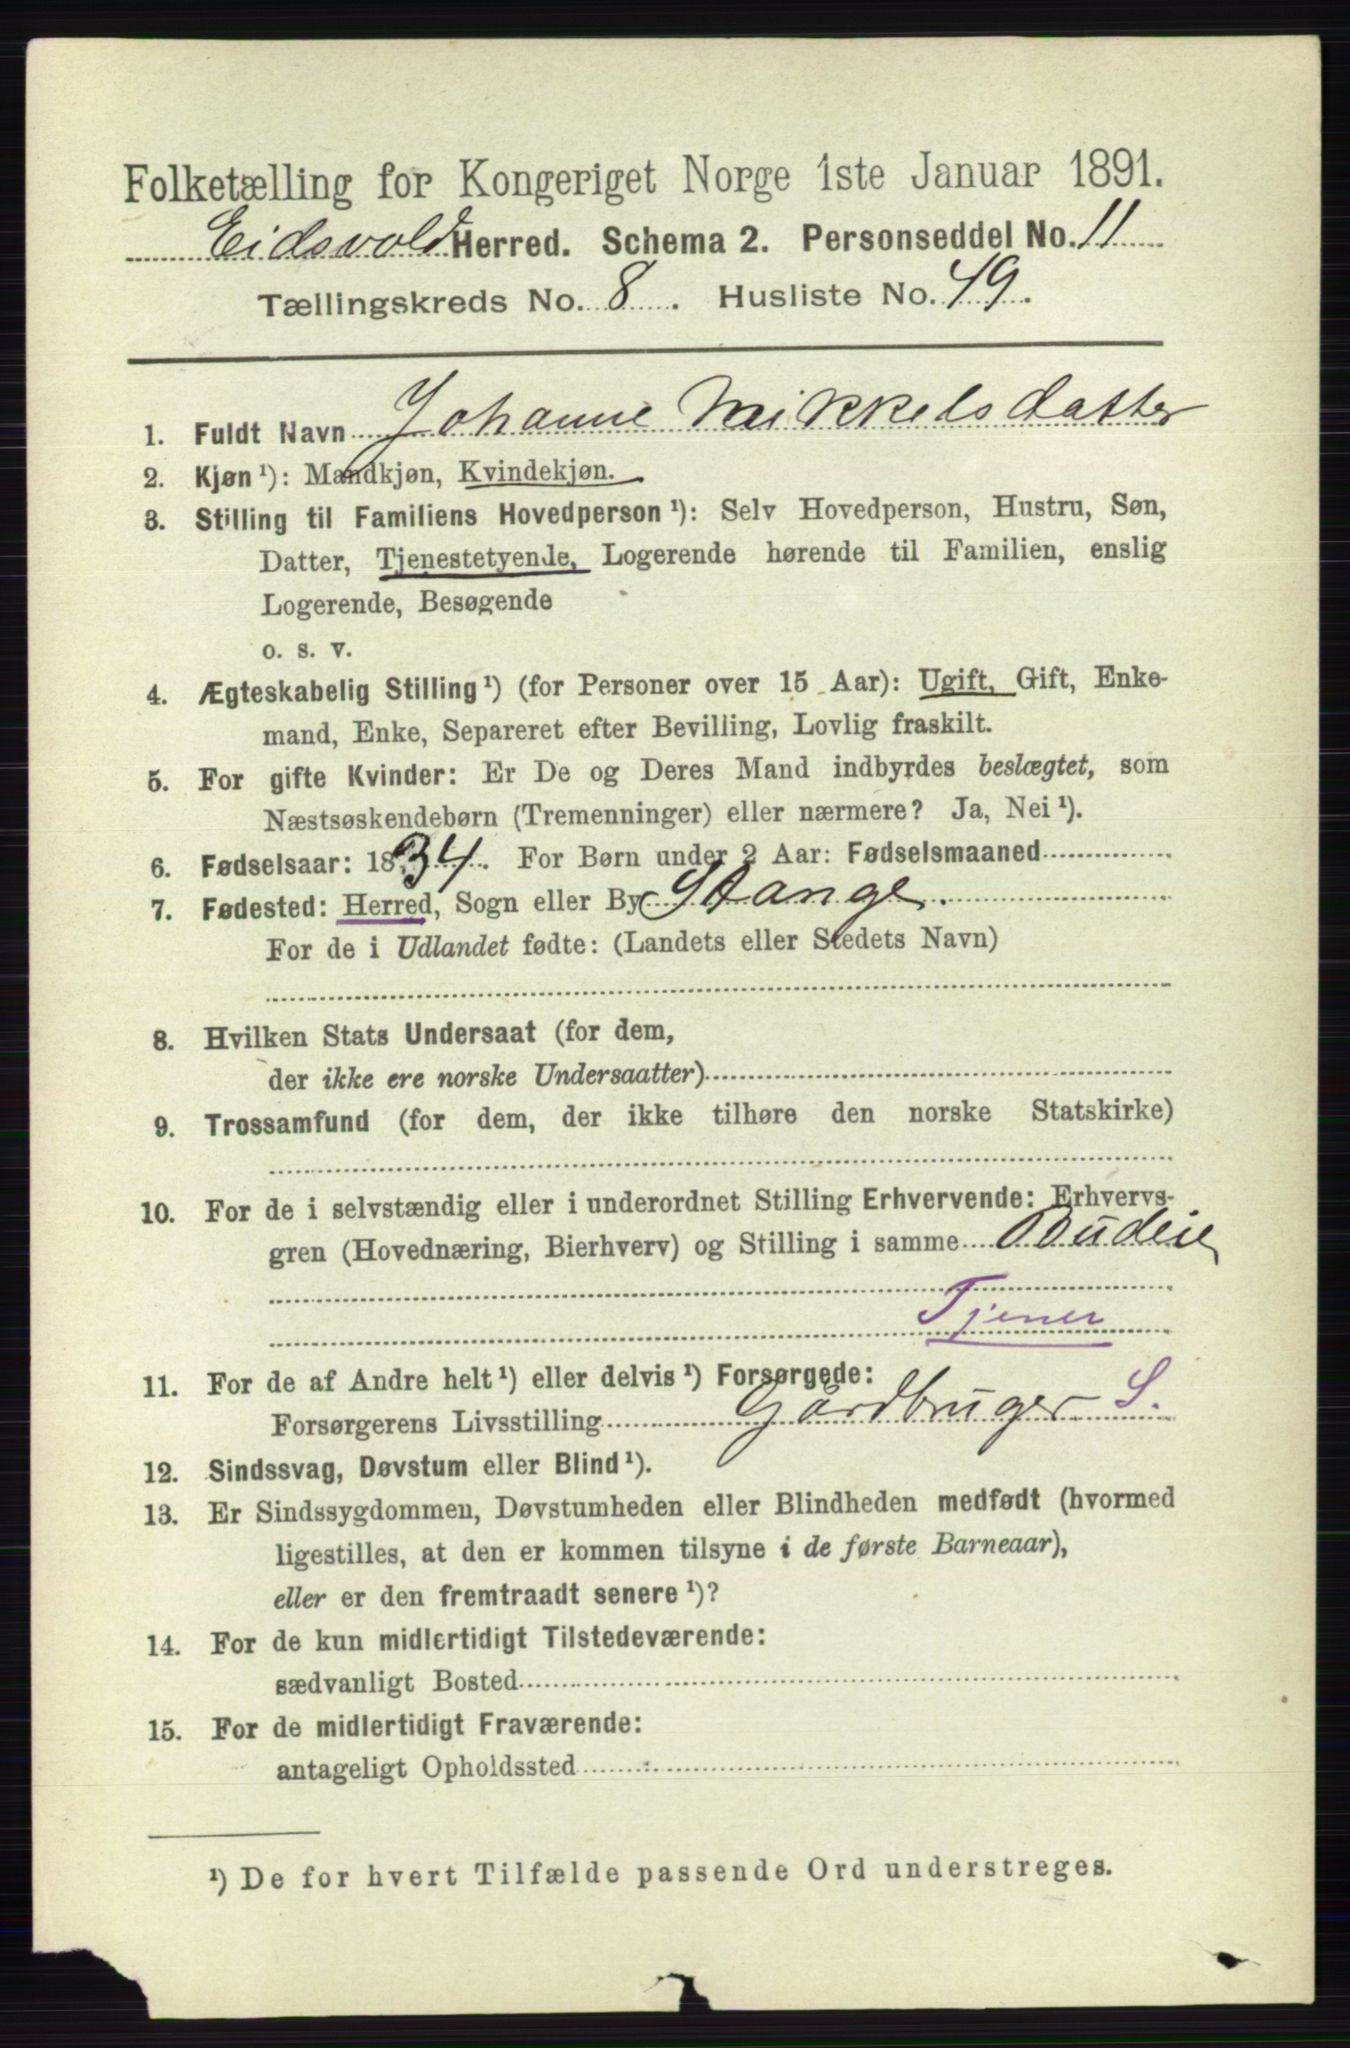 Folketælling for Kongeriget Norge 1ste Januar 1891.
Eidsvold Herred. Schema 2. Personseddel No. 11
Tællingskreds No. 8. Husliste No. 49.
1. Fuldt Navn Johanne Mikkelsdatter
2. Kjøn ¹): Mandkjøn, Kvindekjøn.
3. Stilling til Familiens Hovedperson ¹): Selv Hovedperson, Hustru, Søn,
Datter, Tjenestetyende, Logerende hørende til Familien, enslig
Logerende, Besøgende
o. s. v.
4. Ægteskabelig Stilling ¹) (for Personer over 15 Aar): Ugift, Gift, Enke-
mand, Enke, Separeret efter Bevilling, Lovlig fraskilt.
5. For gifte Kvinder: Er De og Deres Mand indbyrdes beslægtet, som
Næstsøskendebørn (Tremenninger) eller nærmere? Ja, Nei ¹).
6. Fødselsaar: 1834. For Børn under 2 Aar: Fødselsmaaned
7. Fødested: Herred, Sogn eller By Stange.
For de i Udlandet fødte: (Landets eller Stedets Navn)
8. Hvilken Stats Undersaat (for dem,
der ikke ere norske Undersaatter)
9. Trossamfund (for dem, der ikke tilhøre den norske Statskirke)
10. For de i selvstændig eller i underordnet Stilling Erhvervende: Erhvervs-
gren (Hovednæring, Bierhverv) og Stilling i samme Budeie
Tjener
11. For de af Andre helt ¹) eller delvis ¹) Forsørgede:
Forsørgerens Livsstilling Gårdbruger S.
12. Sindssvag, Døvstum eller Blind ¹).
13. Er Sindssygdommen, Døvstumheden eller Blindheden medfødt (hvormed
ligestilles, at den er kommen tilsyne i de første Barneaar),
eller er den fremtraadt senere ¹)?
14. For de kun midlertidigt Tilstedeværende:
sædvanligt Bosted
15. For de midlertidigt Fraværende:
antageligt Opholdssted
¹) De for hvert Tilfælde passende Ord understreges.